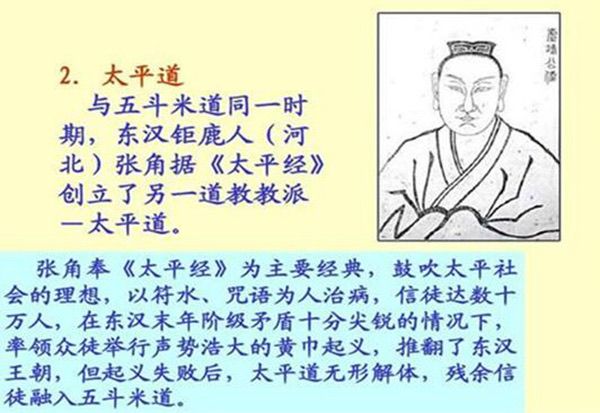 2. 太平道
与五斗米道同一时
期，东汉钜鹿人（河
北）张角据《太平经》
创立了另一道教教派
—太平道。
张角奉《太平经》为主要经典，鼓吹太平社
会的理想，以符水、咒语为人治病，信徒达数十
万人，在东汉末年阶级矛盾十分尖锐的情况下，
率领众徒举行声势浩大的黄巾起义，推翻了东汉
王朝，但起义失败后，太平道无形解体，残余信
徒融入五斗米道。